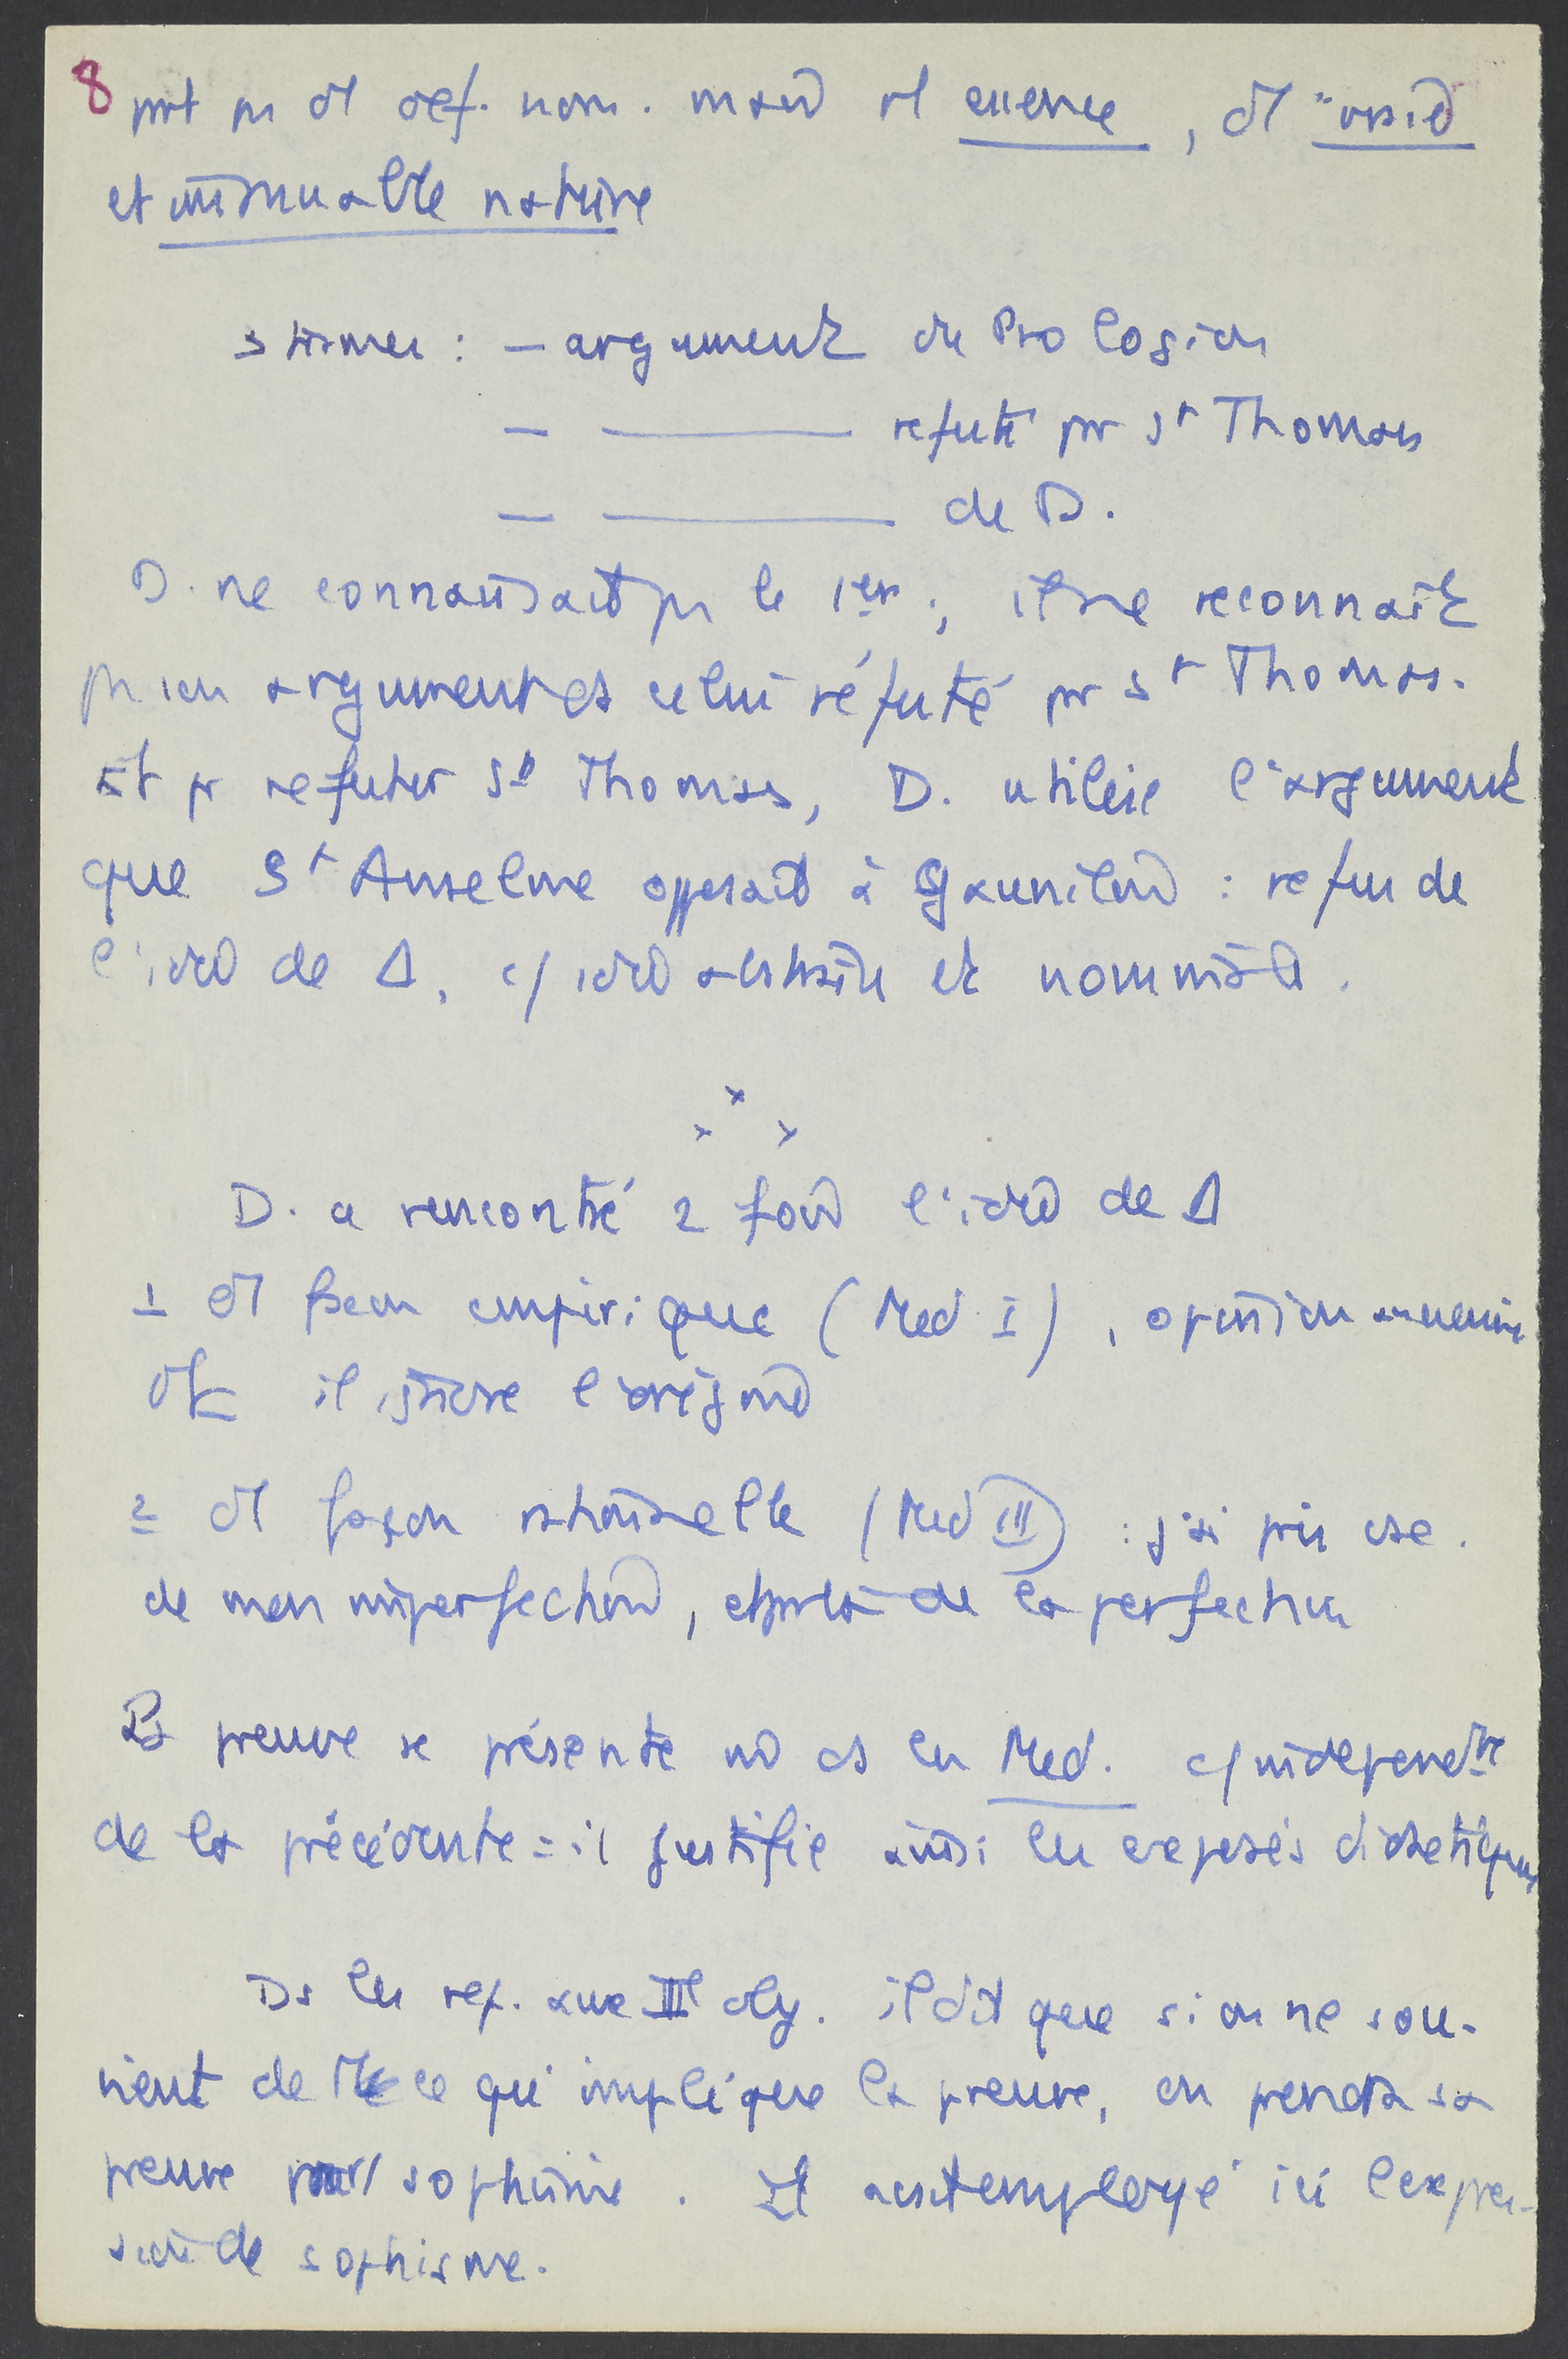 8 prt ps d'1 def. nom. mais d'1 essence, d'1 "vraie
et immuable nature
3 termes : – argument du Proslogion
– ——— refuté pr St Thomas
– ——— de D.
D. ne connaissait ps le 1er ; il ne reconnait
ps son argument ds celui réfuté pr St Thomas.
Et pr refuter St Thomas, D. utilise l'argument
que St Anselme opposait à Gaunilon : refus de
l'idée de Δ, c/ idée abstraite et nominale.
D. a rencontré 2 fois l'idée de Δ
1 d'1 façon empirique (Med I), opinion ancienne
dt il ignore l'origine
2 d'1 façon rationnelle (Med III) : j'ai pris csc.
de mon imperfection, et par là de la perfection
La preuve se présente ds les Med. c/ independte
de la précédente : il justifie ainsi les exposés didactiques
Ds les rep. aux IIIe obj. il dit que si on ne sou-
vient de tt ce qu'implique la preuve, on prendra sa
preuve pour sophisme. Il avait employé ici l'expres-
sion de sophisme.